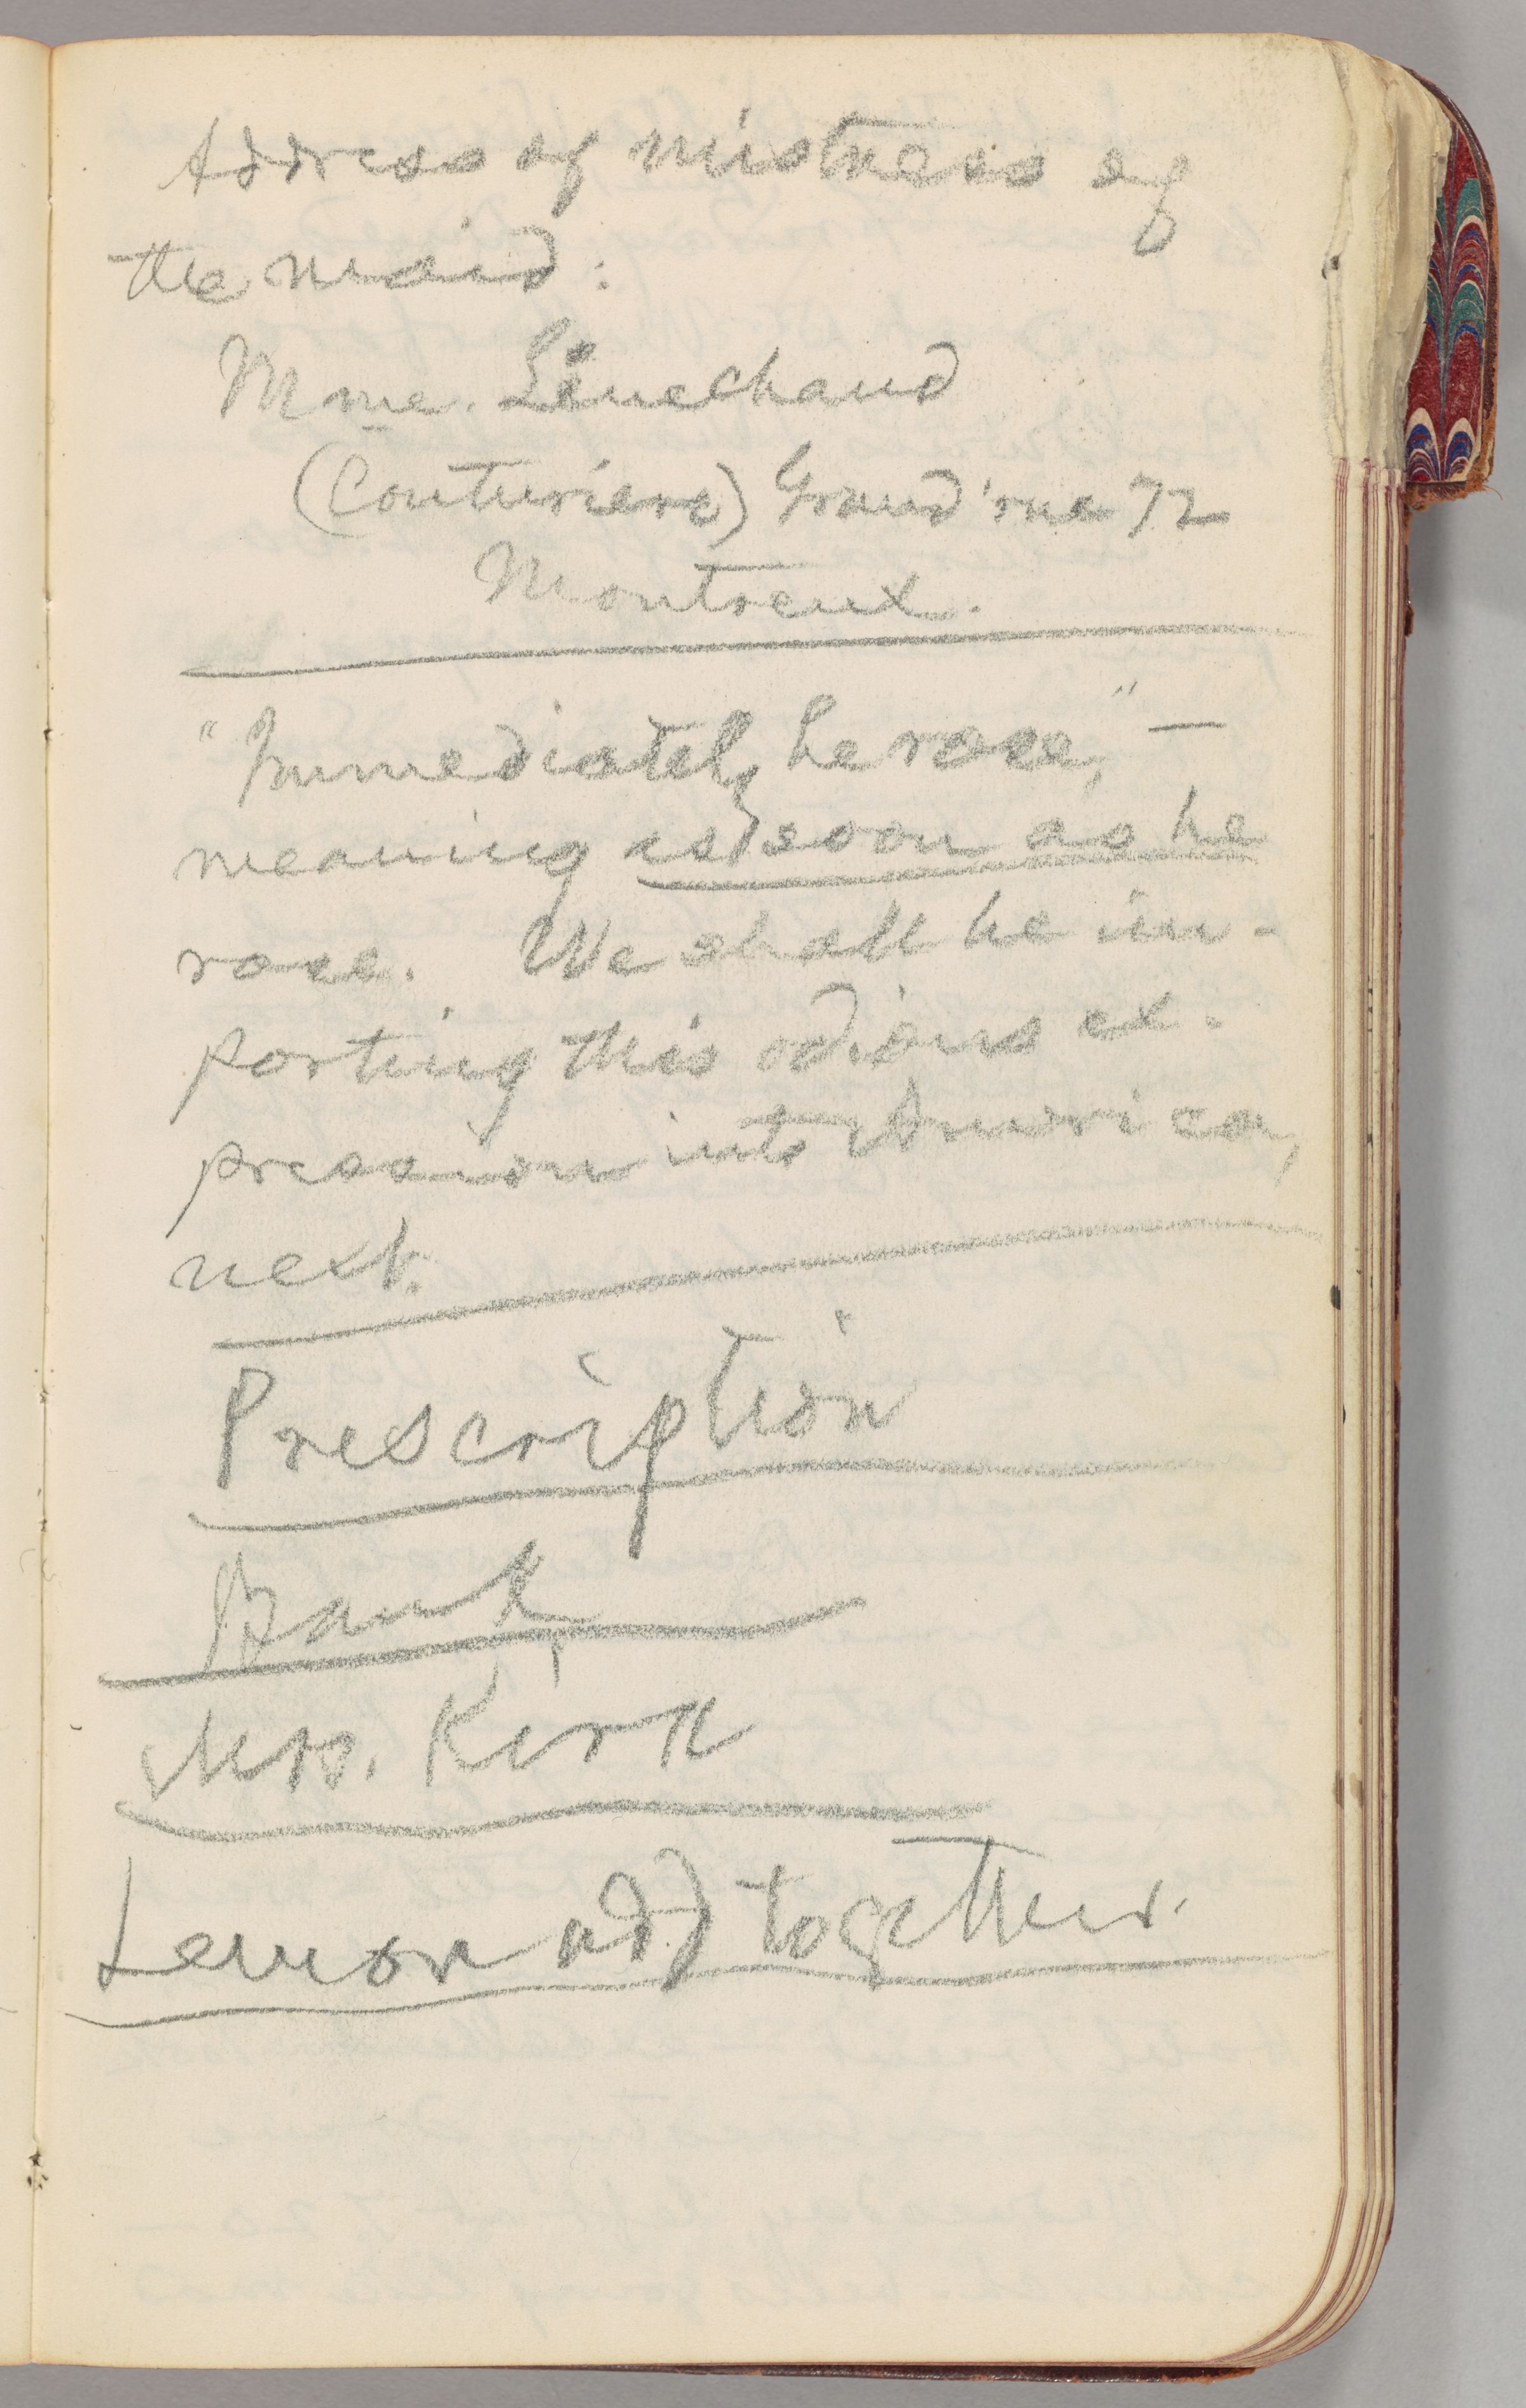 Address of mistress of
the maid:
Mme. Sénechaud
(Couturiere) Grand'rue 72
Montreux.
"Immediately he rose," —
meaning as soon as he
rose. We shall be im-
porting this odious ex-
pression into America,
next.
Prescription
Bank
Mrs. Kirn
Lemon add together.